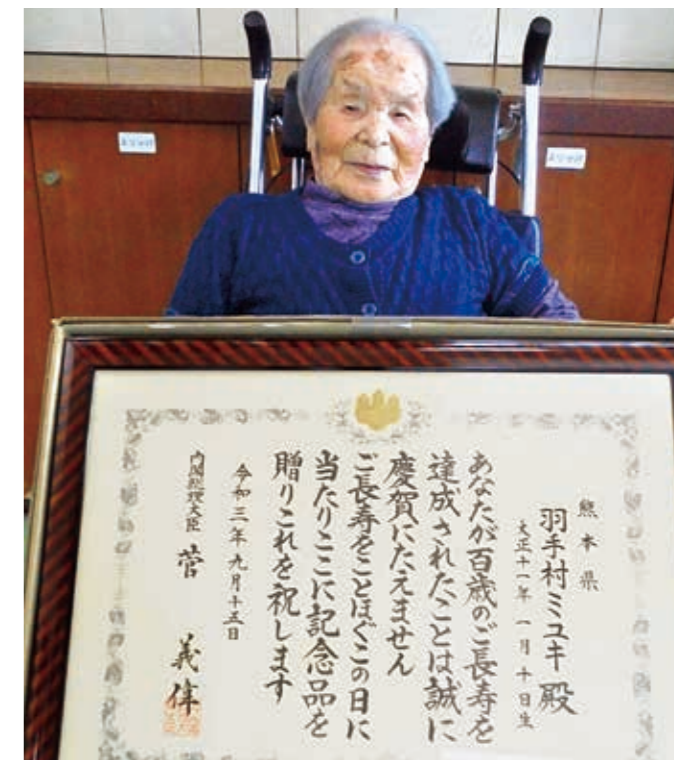 熊本県
羽手村ミユキ殿
大正十一年一月十日生
あなたが百歳のご長寿を
達成されたことは誠に
慶賀にたえません
ご長寿をことほぐこの日に
当たりここに記念品を
贈りこれを祝します
令和三年九月十五日
内閣総理大臣 菅 義偉